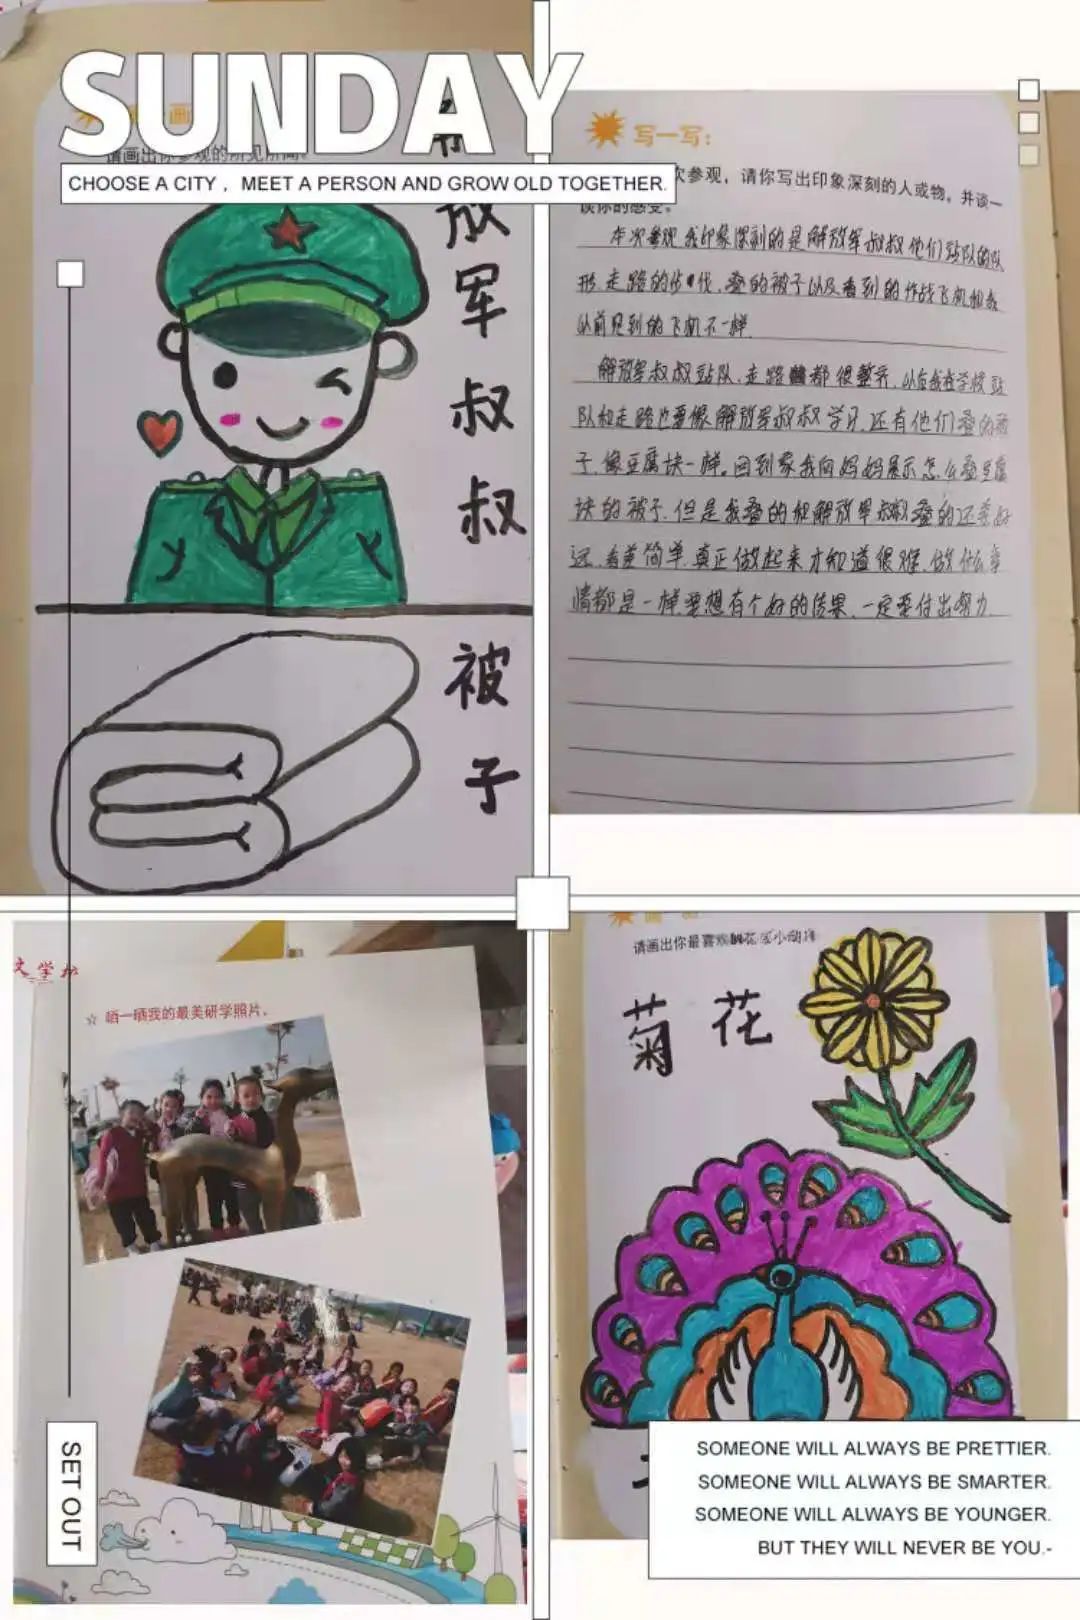 SUNDAY
CHOOSE A CITY， MEET A PERSON AND GROW OLD TOGETHER.
画
请画出你参观的所见所闻。
放
军
叔
叔
被
子
写一写：
次参观，请你写出印象深刻的人或物，并谈一
谈你的感受。
本次参观我印象深刻的是解放军叔叔他们站队的队
形、走路的步伐，叠的被子以及看到的作战飞机和我
以前见到的飞机不一样
解放军叔叔站队、走路都很整齐，以后我在学校站
队和走路也要像解放军叔叔学习，还有他们叠的被
子，像豆腐块一样。回到家我向妈妈展示怎么叠豆腐
块的被子，但是我叠的和解放军叔叔叠的还差好
远，看着简单，真正做起来才知道很难，做什么事
情都是一样要想有个好的结果，一定要付出努力
文学
☆ 晒一晒我的最美研学照片。
SET OUT
请画出你最喜欢的花或小动物
菊花
SOMEONE WILL ALWAYS BE PRETTIER.
SOMEONE WILL ALWAYS BE SMARTER.
SOMEONE WILL ALWAYS BE YOUNGER.
BUT THEY WILL NEVER BE YOU.-